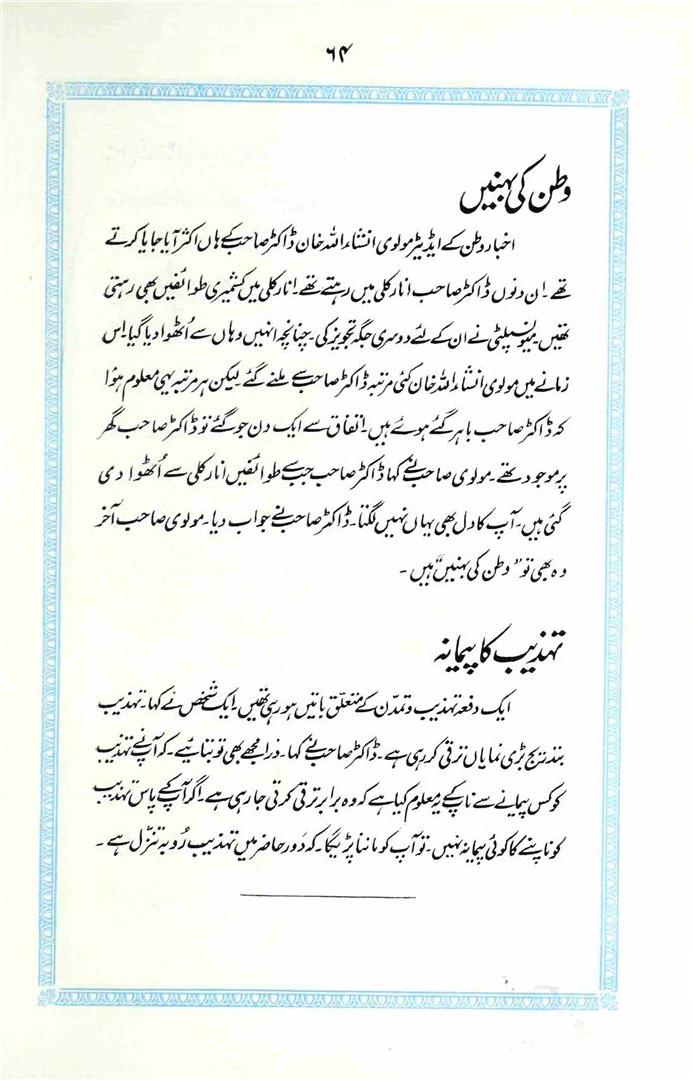 ۶۴
وطن کی بہنیں
اخبار وطن کے ایڈیٹر مولوی انشاء اللہ خان ڈاکٹر صاحب کے ہاں اکثر آیا جایا کرتے
تھے۔ ان دنوں ڈاکٹر صاحب انار کلی میں رہتے تھے۔ انار کلی میں کشمیری طوائفیں بھی رہتی
تھیں۔ میونسپلٹی نے ان کے لئے دوسری جگہ تجویز کی۔ چنانچہ انہیں وہاں سے اُٹھوا دیا گیا۔ اس
زمانے میں مولوی انشاء اللہ خان کئی مرتبہ ڈاکٹر صاحب سے ملنے گئے لیکن ہر مرتبہ یہی معلوم ہوُا
کہ ڈاکٹر صاحب باہر گئے ہوئے ہیں۔ اتفاق سے ایک دن جو گئے تو ڈاکٹر صاحب گھر
پر موجود تھے۔ مولوی صاحب نے کہا ڈاکٹر صاحب جب سے طوائفیں انار کلی سے اُٹھوا دی
گئی ہیں۔ آپ کا دل بھی یہاں نہیں لگتا۔ ڈاکٹر صاحب نے جواب دیا۔ مولوی صاحب آخر
وہ بھی تو "وطن کی بہنیں" ہیں۔
تہذیب کا پیمانہ
ایک دفعہ تہذیب و تمدّن کے متعلّق باتیں ہو رہی تھیں۔ ایک شخص نے کہا۔ تہذیب
بتدریج بڑی نمایاں ترقی کر رہی ہے۔ ڈاکٹر صاحب نے کہا۔ ذرا مجھے بھی تو بتائیے۔ کہ آپ نے تہذیب
کو کس پیمانے سے ناپ کے یہ معلوم کیا ہے کہ وہ برابر ترقی کرتی جا رہی ہے۔ اگر آپ کے پاس تہذیب
کو ناپنے کا کوئی پیمانہ نہیں۔ تو آپ کو ماننا پڑیگا۔ کہ دَورِ حاضر میں تہذیب رُو بہ تنزّل ہے۔